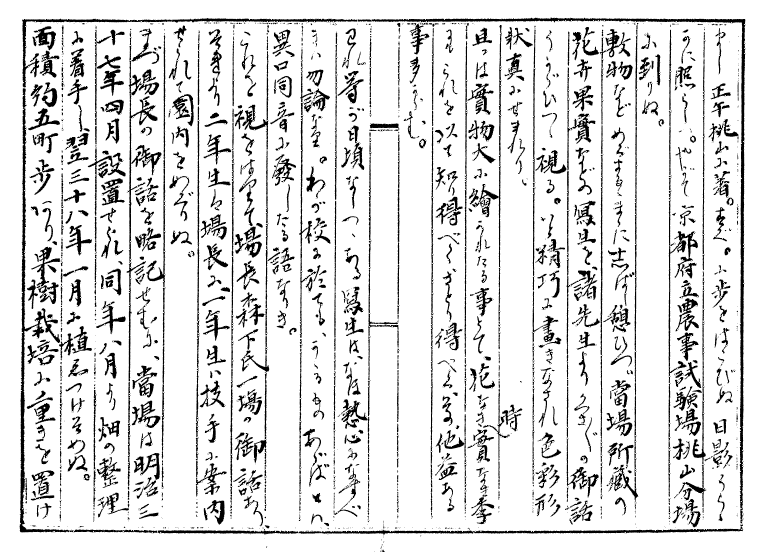 正午桃山に着。すぐに歩をはこびぬ 日影うらゝ
かに照らし。やがて京都府立農事試験場桃山分場
に到りぬ。
敷物などめぐ に志ばし憩ひつゝ當場所蔵の
花卉果實などの寫生を諸先生よりくさ〴〵の御話
うかゞひつゝ視る。いと精巧に畫きなされ色彩形
状真にせまれり。
且つは實物大に繪かれたる事とて、花なき實なき季時
にもこれを以て知り得べくさとり得べく、なほ他益ある
事多からむ。
われ等が日頃なしつゝある寫生は、なほ熱心になすべ
きは勿論なり。わが校に於ても、かゝるものあらばとは、
異口同音に發したる語なりき。
これを視をはりて、場長森下氏一場の御話あり、
それより二年生は場長に、一年生は技手に案内
せられて園内をめぐりぬ。
まづ場長の御話を略記せむに、當場は明治三
十七年四月設置せられ、同年八月より畑の整理
に着手し、翌三十八年一月に植ゑつけそめぬ。
面積約五町歩 あり、果樹栽培に重きを置け